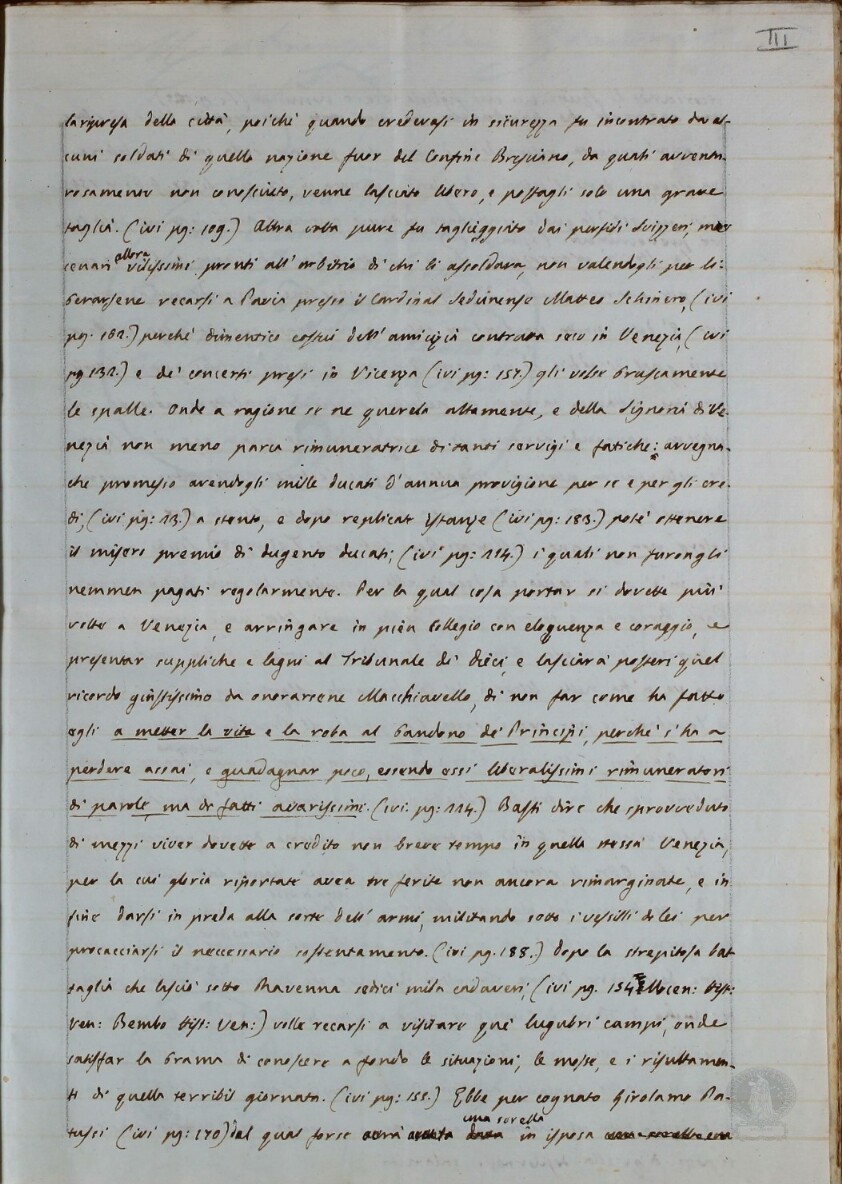 III
la ripresa della città, poichè quando credevasi in sicurezza fu incontrato da al-
cuni soldati di quella nazione fuor del Confine Bresciano, da quali avventu-
rosamente non conosciuto, venne lasciato libero, e postagli solo una grave
taglia. (ivi pg: 109.) Altra volta pure fu taglieggiato dai perfidi Svizzeri, mer
cenari allora vilissimi pronti all'arbitrio di chi li assoldava, non valendogli per li-
berarsene recarsi a Pavia presso il Cardinal Sedunense Matteo Schinero, (ivi
pg. 182.) perchè dimentico costui dell'amicizia contratta seco in Venezia, (ivi
pg 132.) e de' concerti presi in Vicenza (ivi pg: 157.) gli volse bruscamente
le spalle. Onde a ragione se ne querela altamente, e della Signoria di Ve-
nezia non meno parca rimuneratrice di tanti servigi e fatiche: avvegna-
che promesso avendogli mille ducati d'annua provigione per se e per gli ere-
di, (ivi pg: 13.) a stento, e dopo replicate istanze (ivi pg: 183.) potè ottenere
il misero premio di dugento ducati; (ivi pg: 114.) i quali non furongli
nemmen pagati regolarmente. Per la qual cosa portar si dovette più
volte a Venezia, e arringare in pien Collegio con eloquenza e coraggio, e
presentar suppliche e lagni al Tribunale di dieci, e lasciar a posteri quel
ricordo giustissimo da onorarsene Macchiavello, di non far come ha fatto
egli a metter la vita e la roba al bandono de' Principi, perchè s'ha a
perdere assai, e guadagnar poco, essendo essi liberalissimi rimuneratori
di parole, ma di fatti avarissimi. (ivi. pg: 114.) Basti dire che sprovveduto
di mezzi viver dovette a credito non breve tempo in quella stessa Venezia,
per la cui gloria riportate avea tre ferite non ancora rimarginate, e in
fine darsi in preda alla sorte dell'armi, militando sotto i vessilli di lei per
procacciarsi il neccessario sostentamento. (ivi pg. 188.) dopo la strepitosa bat
taglia che lasciò sotto Ravenna sedici mila cadaveri, (ivi pg. 154 Mocen: Hist:
Ven: Bembo Hist: Ven:) volle recarsi a visitare que' lugubri campi, onde
satisfar la brama di conoscere a fondo le situazioni, le mosse, e i risultamen-
ti di quella terribil giornata. (ivi pg: 155.) Ebbe per cognato Girolamo Pa-
tussi (ivi pg: 170) del qual forse una sorella in isposa